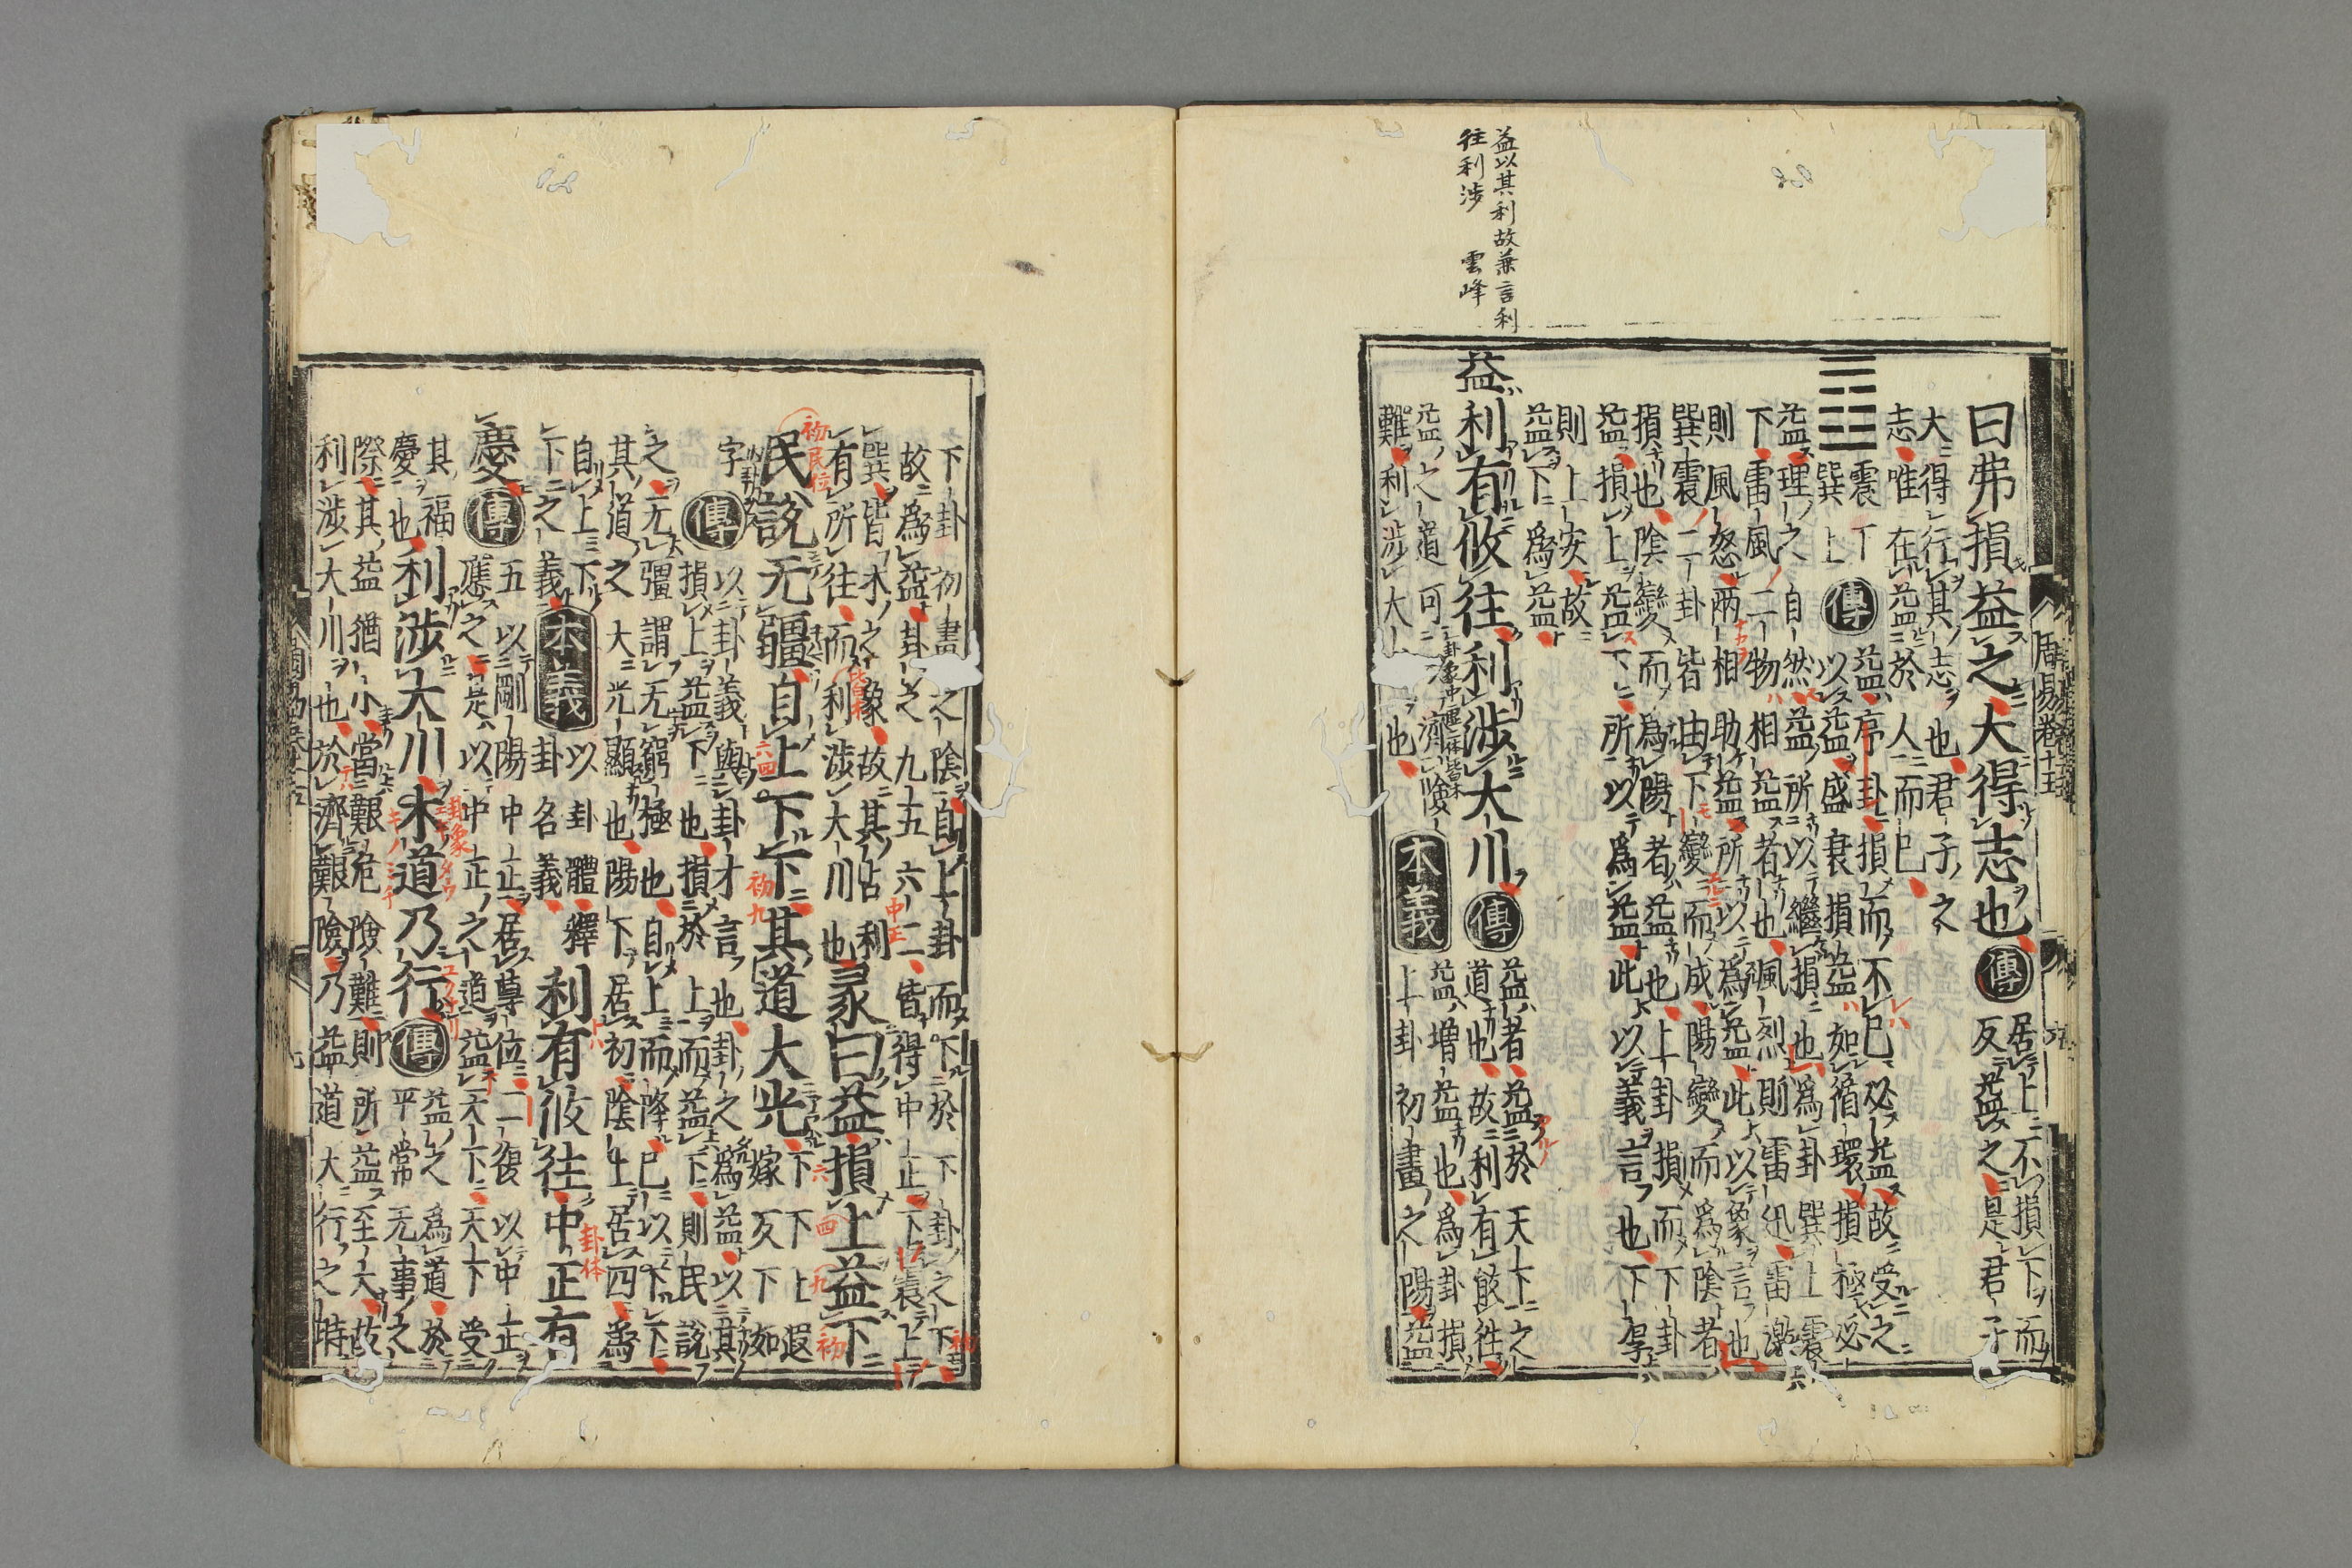 益以其利故兼言利
往利涉　雲峰
周易卷十五
曰弗損益之大得志也傳居上不損下而
反益之是君子
大得行其志也君子之
志唯在益於人而已
震下
巽上
傳益序卦損而不已必益故受之
以益盛衰損益如循環損極必
益理之自然益所以繼損也為卦巽上震
下雷風二物相益者也風烈則雷迅雷激
則風怒兩相助益所以為益此以象言也
巽震二卦皆由下變而成陽變而為陰者
損也陰變而為陽者益也上卦損而下卦
益損上益下所以為益此以義言也下厚
則上安故
益下為益
益利有攸往利涉大川傳益者益於天下之
道也故利有攸往
益之道可濟險
難利涉大川也
本義益增益也為卦損
上卦初畫之陽益
下卦初畫之陰自上卦而下於下卦之下
故為益卦之九五六二皆得中正下震上
巽皆木之象故其占利
有所往而利涉大川也
彖曰益損上益下
民說无疆自上下下其道大光下下上遐
嫁反下如
字傳以卦義與卦才言也卦之為益以其
損上益下也損於上而益下則民說
之无疆謂无窮極也自上而降己以下下
其道之大光顯也陽下居初陰上居四為
自上下
下之義
本義以卦體釋
卦名義
利有攸往中正有
慶傳五以剛陽中正居尊位二復以中正
應之是以中正之道益天下天下受
其福
慶也
利涉大川木道乃行傳益之為道於
平常无事之
際其益猶小當艱危險難則所益至大故
利涉大川也於濟艱險乃益道大行之時